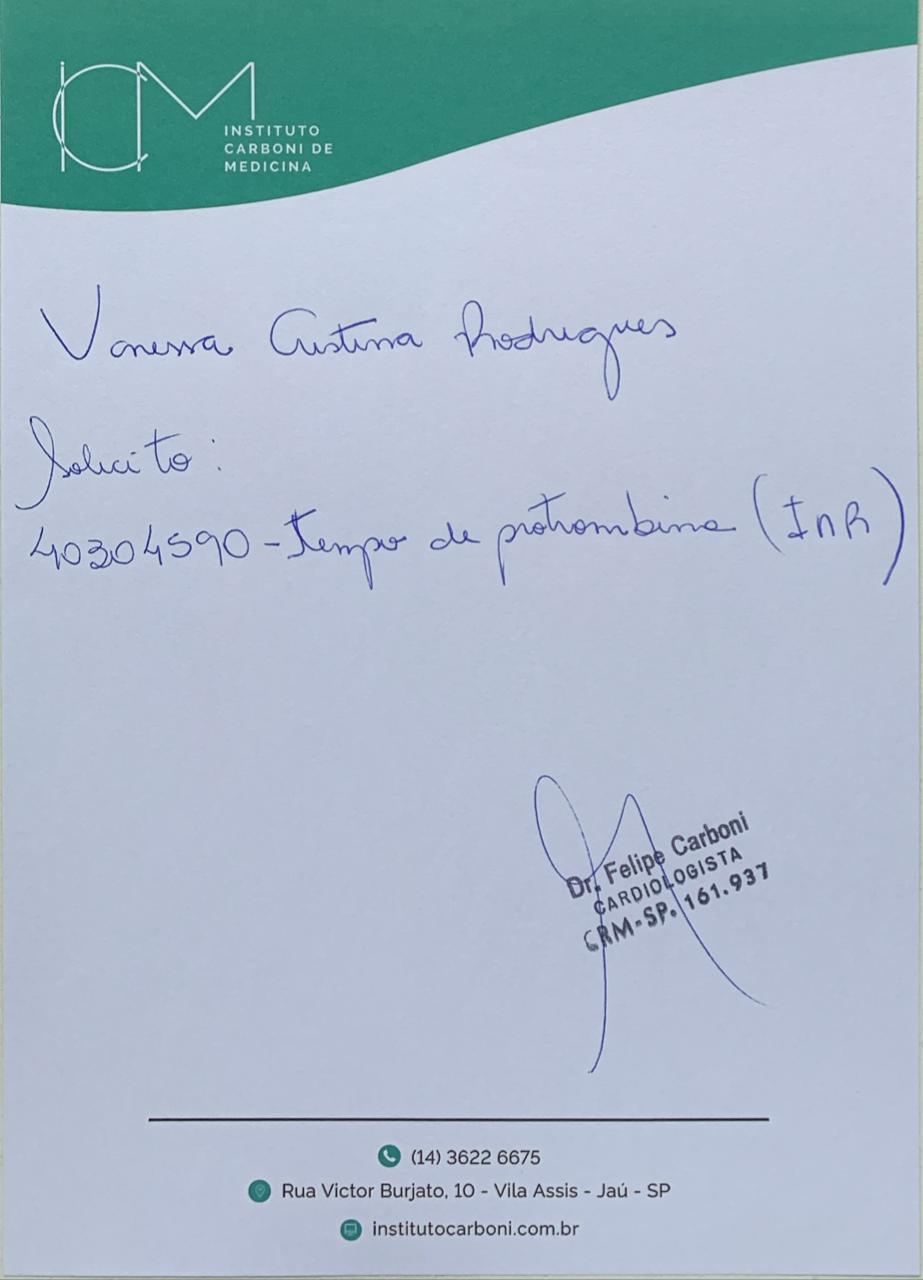 ICM
INSTITUTO
CARBONI DE
MEDICINA
Vanessa Cristina Rodrigues
Solicito:
40304590 - Tempo de protrombina (INR)
Dr. Felipe Carboni
CARDIOLOGISTA
CRM-SP. 161.937
(14) 3622 6675
Rua Victor Burjato, 10 - Vila Assis - Jaú - SP
institutocarboni.com.br